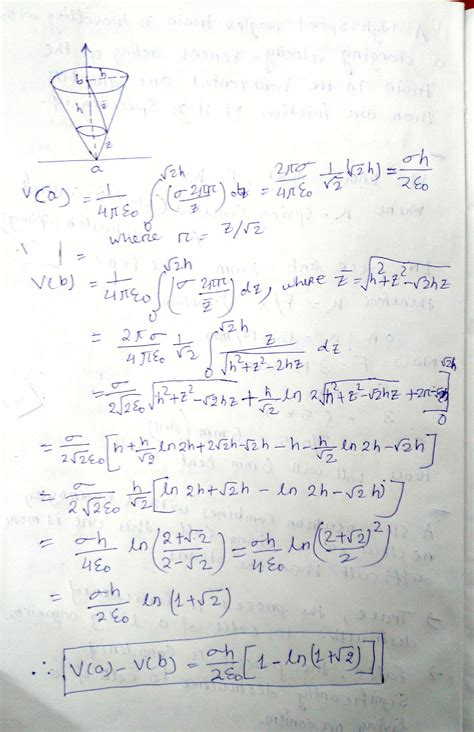 b h
h z̄
z
a
V(a) = 1/4πε₀ ∫₀^√2h (σ2πr/z) dz = 2πσ/4πε₀ 1/√2 (√2h) = σh/2ε₀
where r = z/√2
V(b) = 1/4πε₀ ∫₀^√2h (σ2πr/z̄) dz, where z̄ = √h²+z²-√2hz
= 2πσ/4πε₀ 1/√2 ∫₀^√2h z/√h²+z²-2hz dz.
= σ/2√2ε₀ √h²+z²-√2hz + h/√2 ln 2√h²+z²-√2hz + 2z-√2h]₀^√2h
= σ/2√2ε₀ [h+h/√2 ln2h+2√2h-√2h-h-h/√2 ln 2h-√2h]
= σ/2√2ε₀ h/√2 [ln 2h+√2h - ln 2h-√2h]
= σh/4ε₀ ln(2+√2/2-√2) = σh/4ε₀ ln((2+√2)²/2)
= σh/2ε₀ ln(1+√2)
∴ V(a)-V(b) = σh/2ε₀ [1-ln(1+√2)]